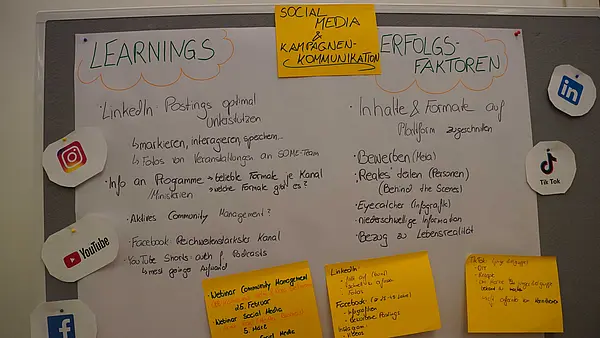 SOCIAL
MEDIA
&
KAMPAGNEN-
KOMMUNIKATION
LEARNINGS
• LinkedIn: Postings optimal
unterstützen
↳ markieren, interagieren, speichern...
↳ Fotos von Veranstaltungen an SOME-Team
• Info an Programme → beliebte Formate je Kanal
/Ministerien → welche Formate gibt es?
• Aktives Community Management?
• Facebook Reichweitenstärkster Kanal
• YouTube Shorts: auch f. Podcasts
↳ mega geringer Aufwand
ERFOLGS-
FAKTOREN
• Inhalte & Formate auf
Plattform zugeschnitten
• Bewerben (Meta)
• "Reales" teilen (Personen)
(Behind the Scenes)
• Eyecatcher (Infografik)
• niederschwellige Information
• Bezug zu Lebensrealität
YouTube
Tik Tok
in
f
• Webinar Community Management
25. Februar
Webinar Social Media
5. März
Social Media
LinkedIn:
Fotos
Facebook:
- Infografiken
- Postings
Instagram:
- Videos
TikTok:
- DIY
- Rezepte